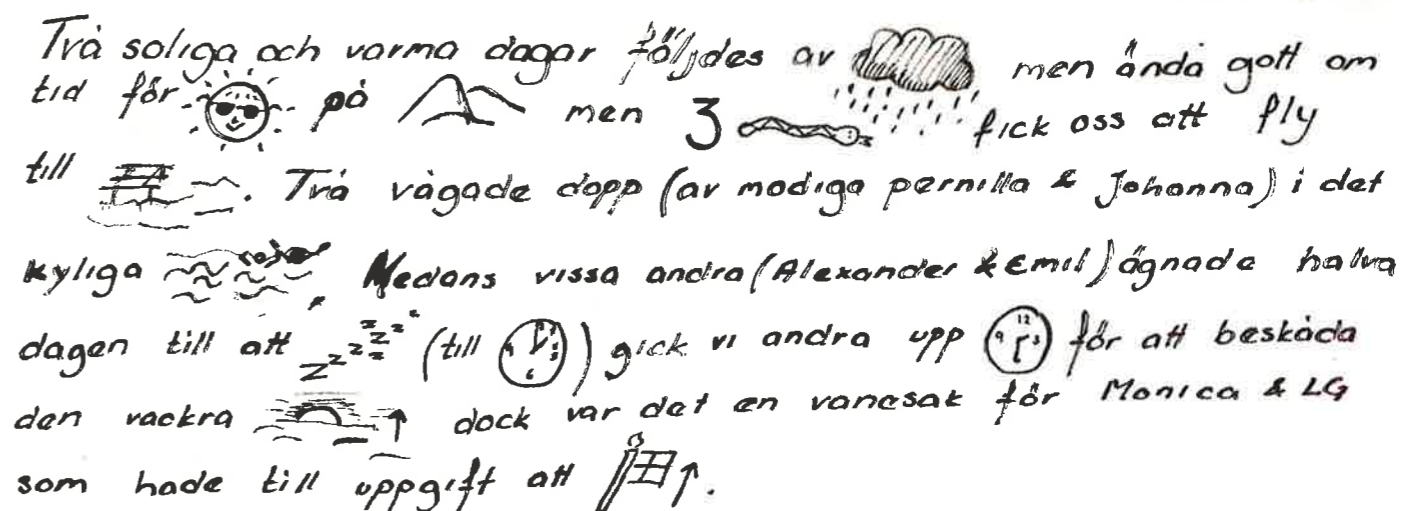 Två soliga och varma dagar följdes av men ändå gott om
tid för på men 3 fick oss att fly
till . Två vågade dopp (av modiga pernilla & Johanna) i det
kyliga . Medans vissa andra (Alexander & Emil) ägnade halva
dagen till att zzzzzzz (till ) gick vi andra upp för att beskåda
den vackra dock var det en vanesak för Monica & LG
som hade till uppgift att .